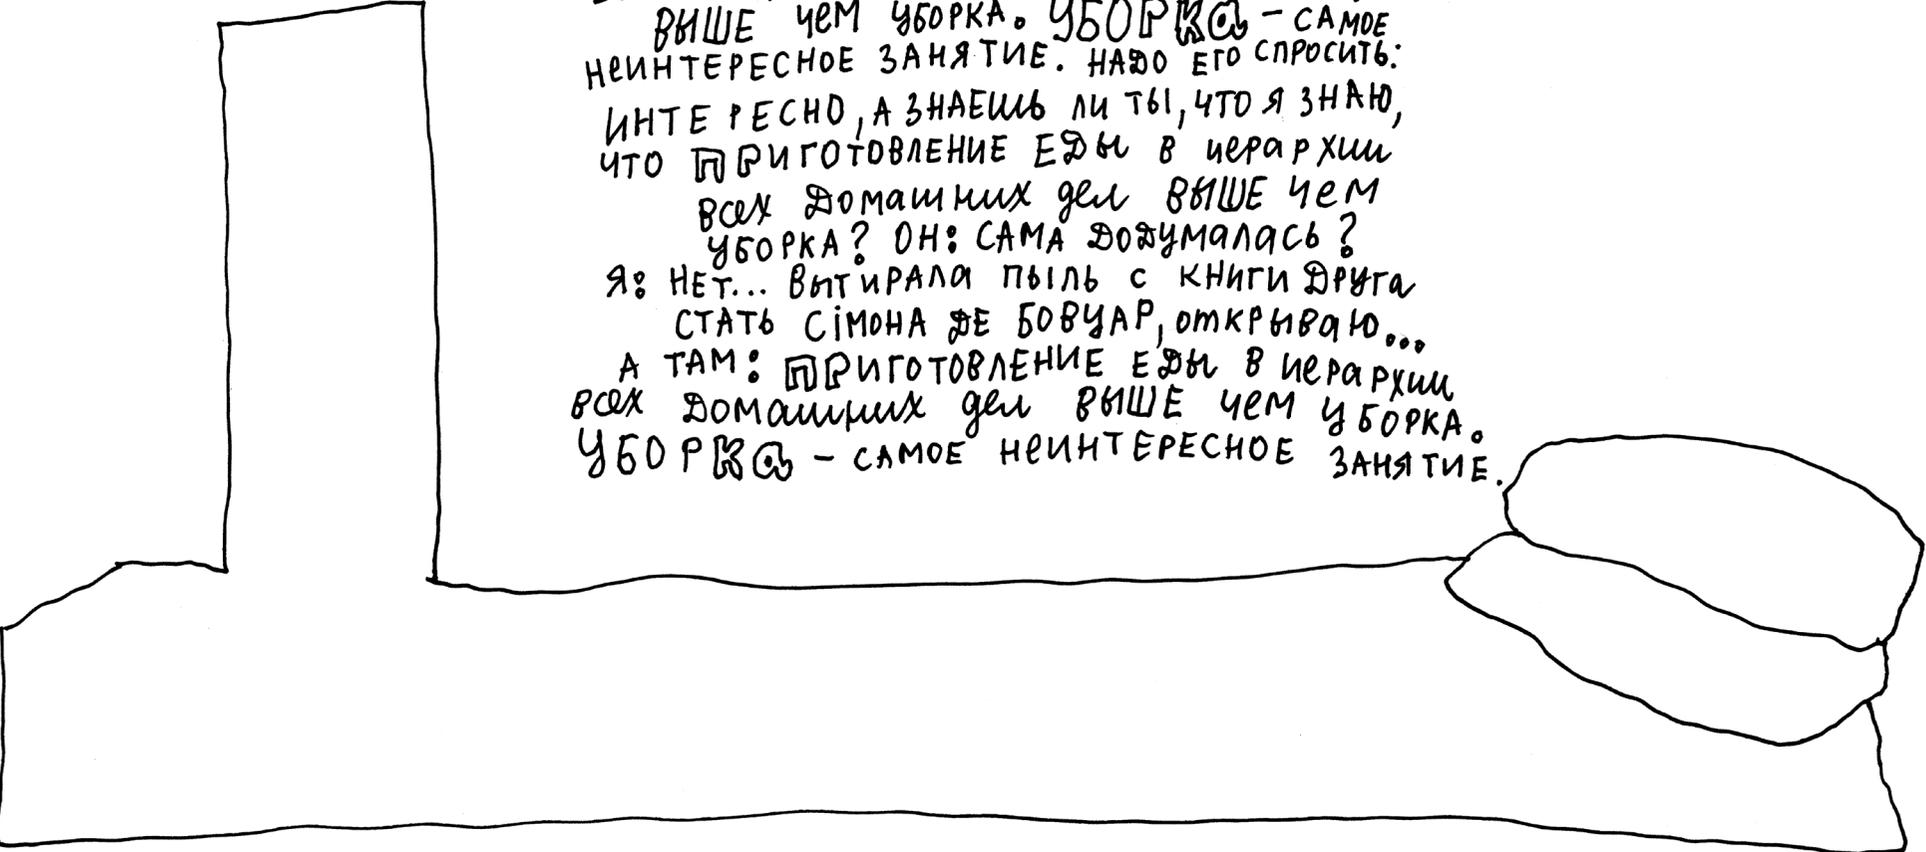 ВЫШЕ ЧЕМ УБОРКА. УБОРКА – САМОЕ
НЕИНТЕРЕСНОЕ ЗАНЯТИЕ. НАДО ЕГО СПРОСИТЬ:
ИНТЕРЕСНО, А ЗНАЕШЬ ЛИ ТЫ, ЧТО Я ЗНАЮ,
ЧТО ПРИГОТОВЛЕНИЕ ЕДЫ В иерархии
всех Домашних дел ВЫШЕ ЧЕМ
УБОРКА? ОН: САМА ДОДУМАЛАСЬ?
Я: НЕТ... ВЫТИРАЛА ПЫЛЬ С КНИГИ ДРУГА
СТАТЬ СІМОНА ДЕ БОВУАР, ОТКРЫВАЮ...
А ТАМ: ПРИГОТОВЛЕНИЕ ЕДЫ В иерархии
всех Домашних дел ВЫШЕ ЧЕМ УБОРКА.
УБОРКА – САМОЕ НЕИНТЕРЕСНОЕ ЗАНЯТИЕ.